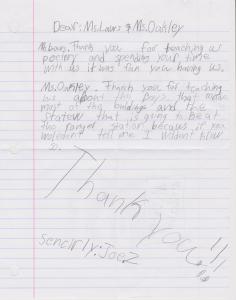 Dear: Ms. Laurs & Ms. Oakley
Ms. Laurs. Thank you for teaching us
poetry and spending your time
with us it was fun you having us.
Ms. Oakley. Thank you for teaching
us about the boys that made
most of the buildings and the
that is going to beat
the station becaus if you
tell me I
Thank you!!!
Sencirly: Joez